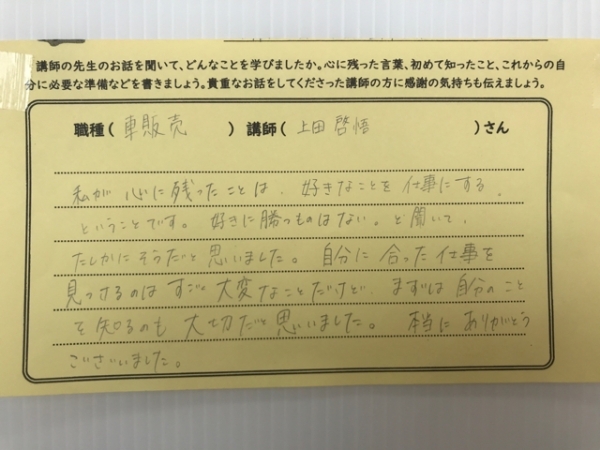 講師の先生のお話を聞いて、どんなことを学びましたか。心に残った言葉、初めて知ったこと、これからの自
分に必要な準備などを書きましょう。貴重なお話をしてくださった講師の方に感謝の気持ちも伝えましょう。
職種( 車販売 ) 講師( 上田 啓悟 )さん
私が 心に残ったことは、好きなことを仕事にする、
ということです。 好きに勝つものはない。と聞いて、
たしかにそうだと思いました。 自分に合った仕事を
見つけるのはすごく大変なことだけど、まずは自分のこと
を知るのも大切だと思いいました。 本当にありがとう
ございました。